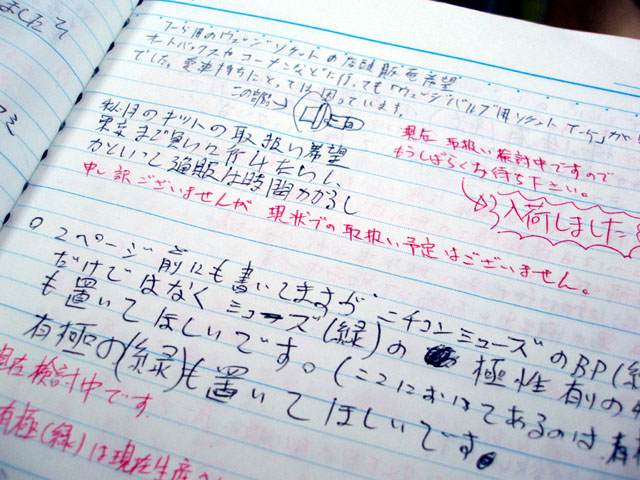 ました そ
T-5用のウェッジソケットの店頭販売希望
オートバックスやコーナンなどに行っても「ウェッジバルブ用ソケット T-5」が
でした。愛車持ちにとっては困っています。
この部品→
秋月のキットの取扱い希望
東京まで買いに行けないし、
かといし通販は時間かかるし
現在 取扱い検討中ですので
もうしばらくお待ち下さい。
→入荷しました
申し訳ございませんが 現状での取扱い予定はございません。
○2ページ前にも書いてますが ニチコンミューズのBP(緑
だけではなく ミューズ(緑)の 極性有りの
も置いてほしいです。(ここにおいてあるのは、有極
有極の(緑)も置いてほしいです。
現在検討中です
有極(緑)は現在生産